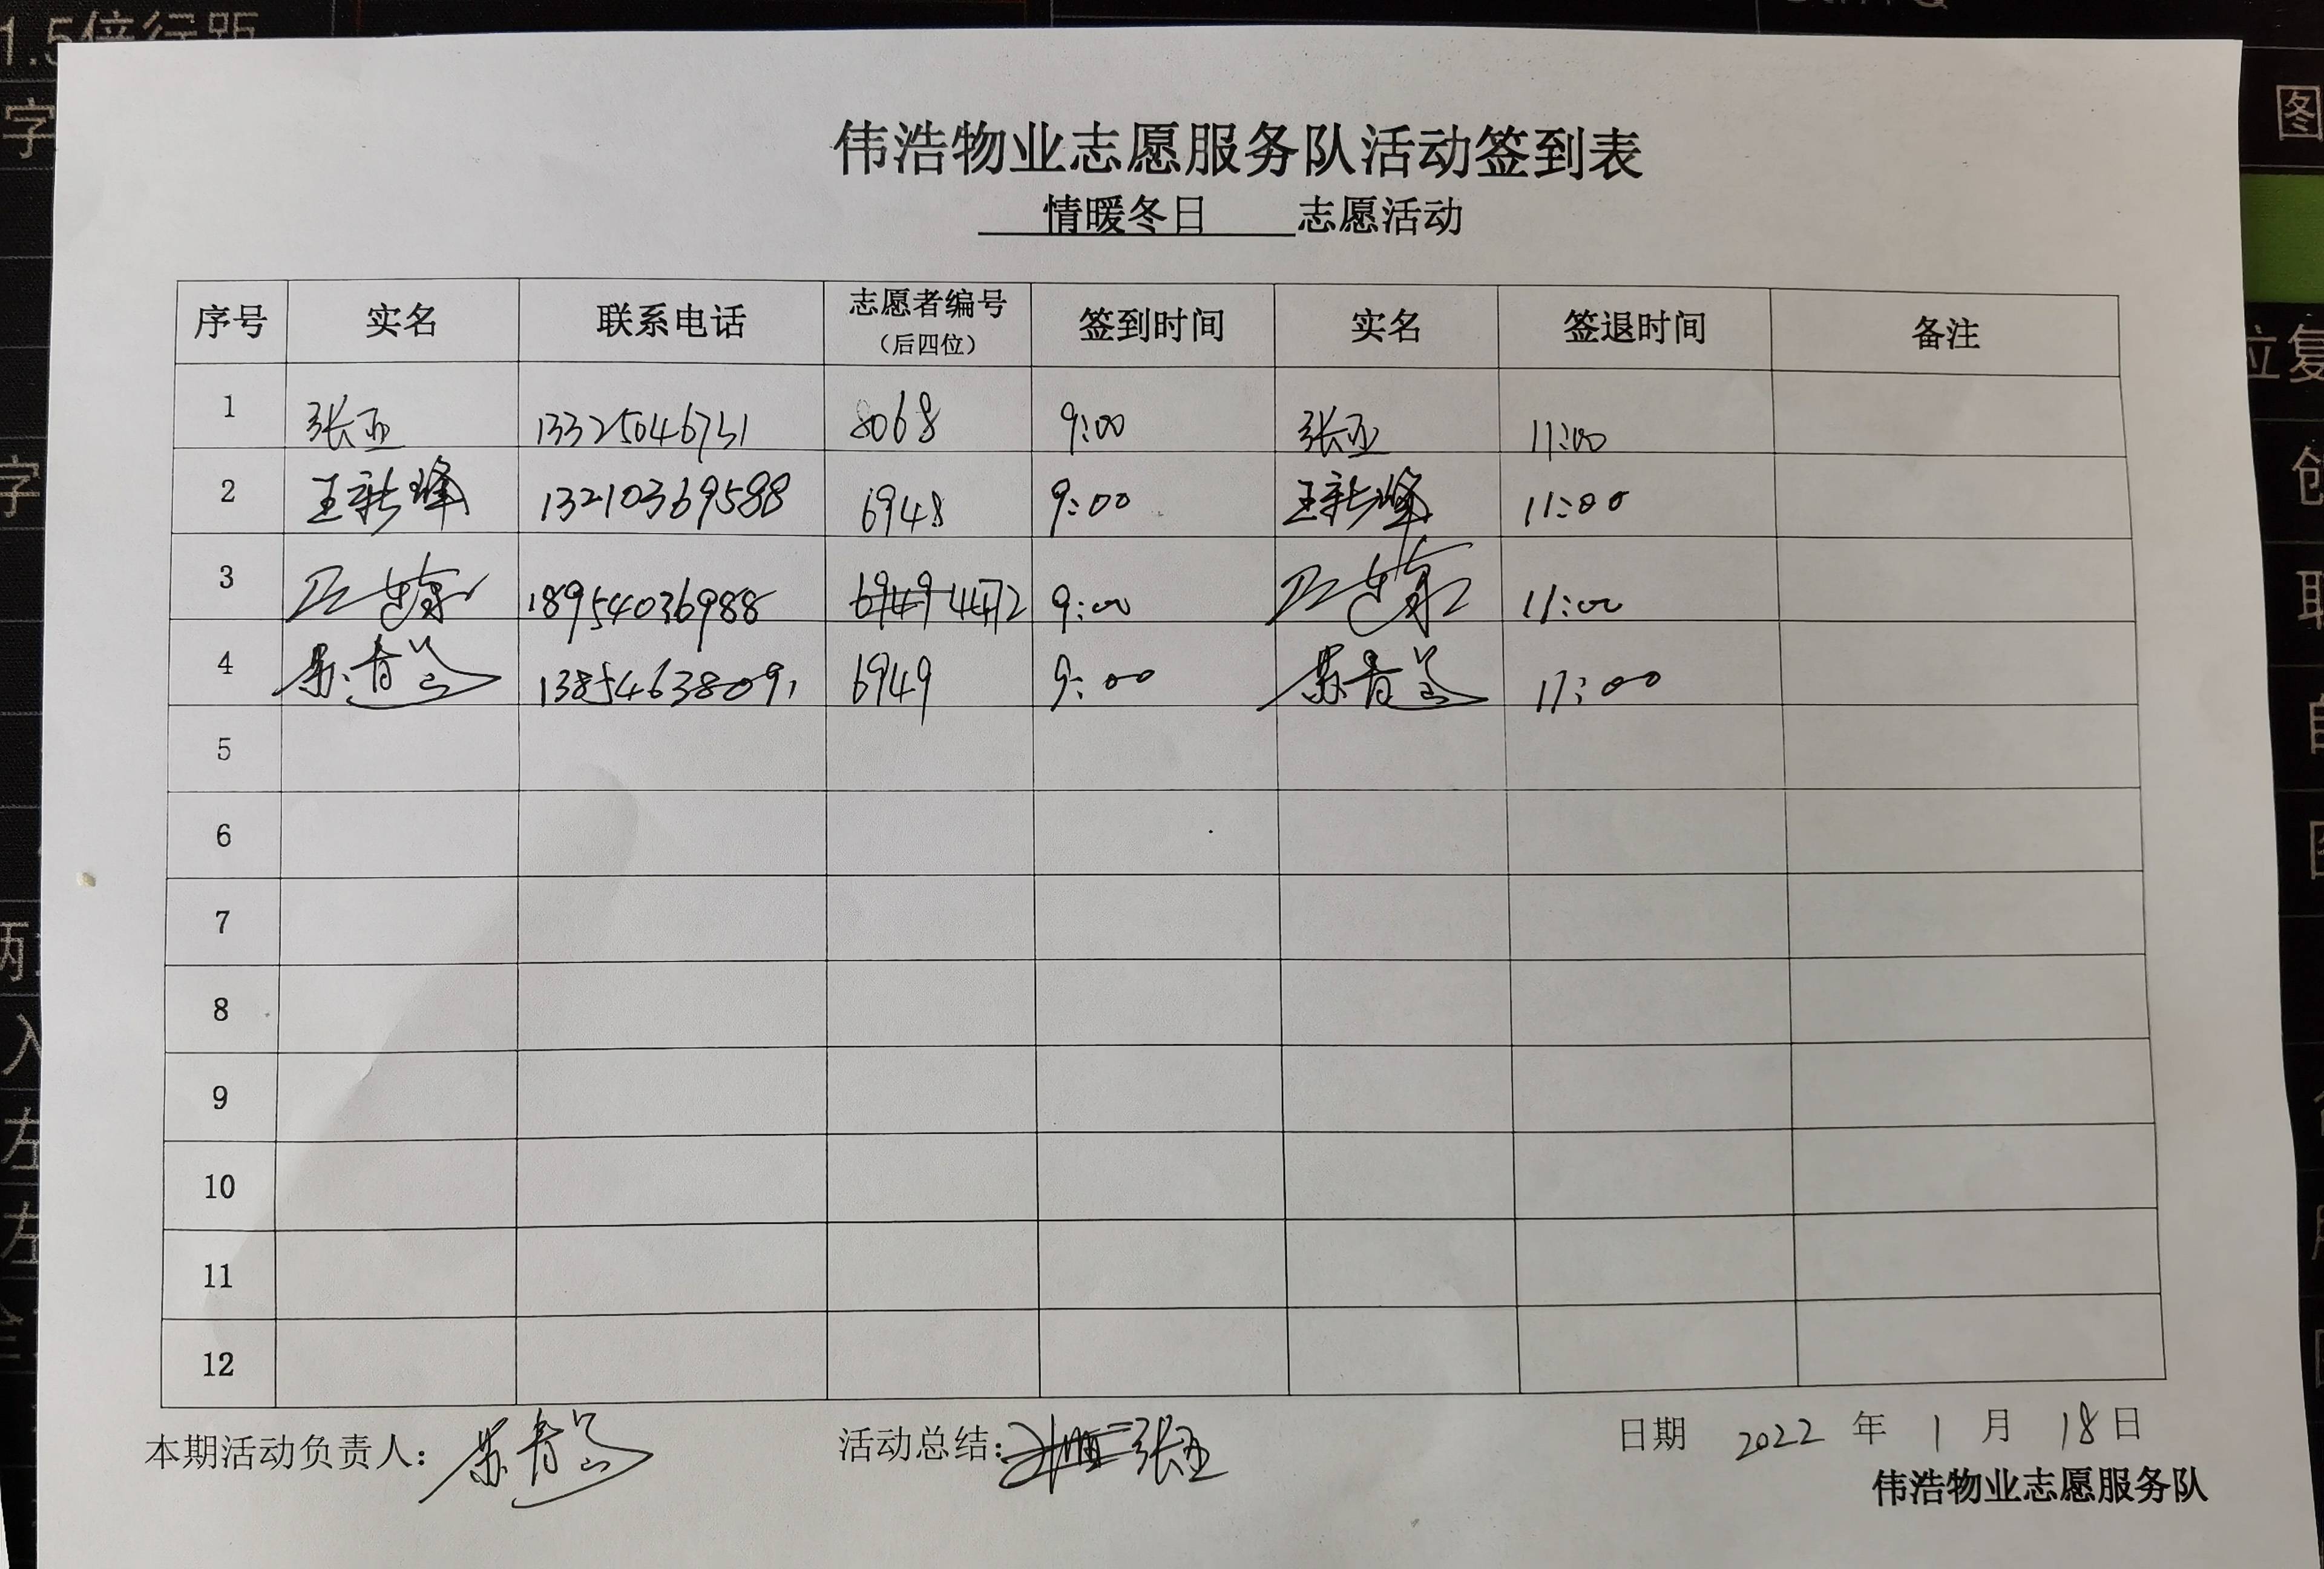 1.5倍行距
字
图
伟浩物业志愿服务队活动签到表
情暖冬日 志愿活动
序号 实名 联系电话 志愿者编号（后四位） 签到时间 实名 签退时间 备注
1 张亚 13325046731 8068 9:00 张亚 11:00
2 王新峰 13210369588 6948 9:00 王新峰 11:00
3 18954036988 6949 4472 9:00 11:00
4 苏青 13854638091 6949 9:00 苏青 11:00
5
6
7
8
9
10
11
12
本期活动负责人： 苏青 活动总结： 张亚 日期 2022 年 1 月 18 日
伟浩物业志愿服务队